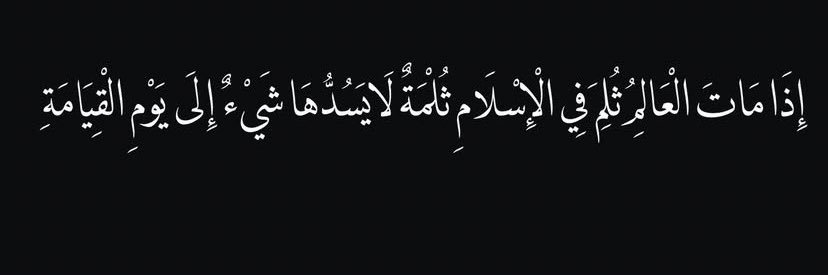 إِذَا مَاتَ الْعَالِمُ ثُلِمَ فِي الْإِسْلَامِ ثُلْمَةٌ لَايَسُدُّهَا شَيْءٌ إِلَى يَوْمِ الْقِيَامَةِ